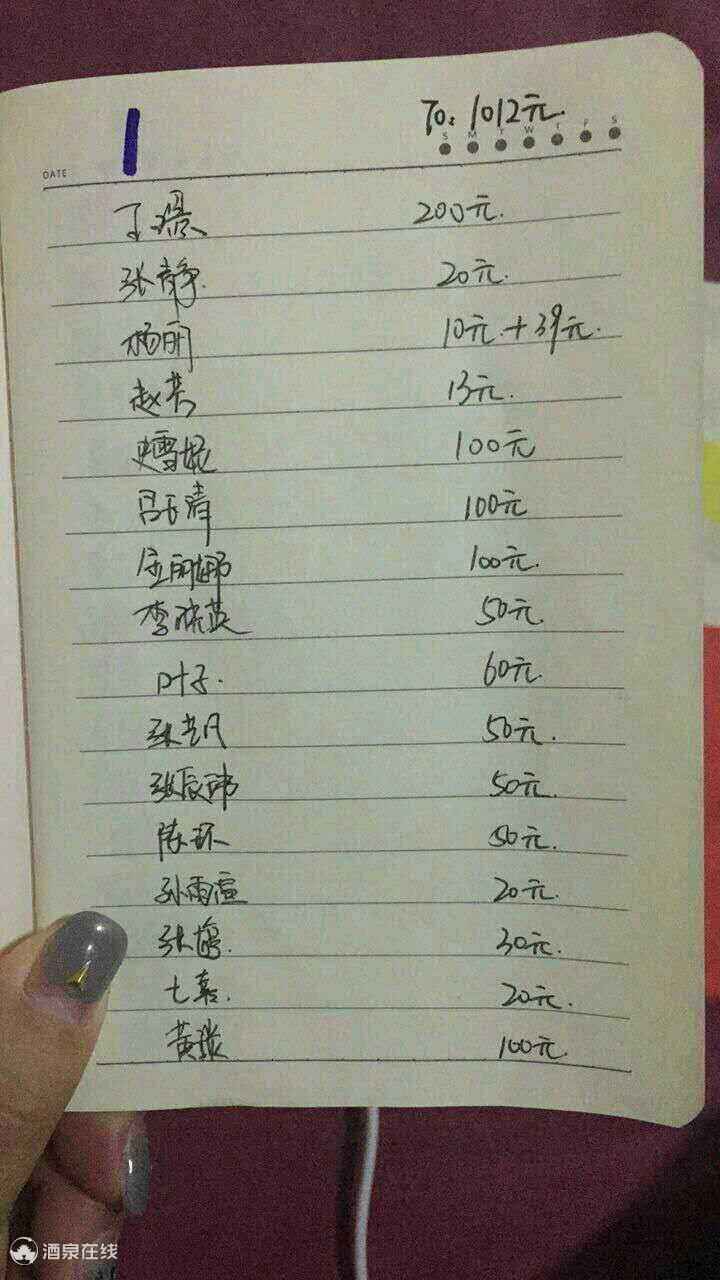 1
To: 1012元
S M T W T F S
DATE
丁璟 200元.
张静. 20元.
杨丽 10元.+39元.
赵芳 13元.
史雪妮 100元
吕玉清 100元
丽娜 100元.
李晓英 50元.
叶子. 60元.
张艺凡 50元.
张辰玮 50元.
陈环 50元.
孙雨萱 20元.
张 30元.
七喜. 20元.
黄 100元.
酒泉在线